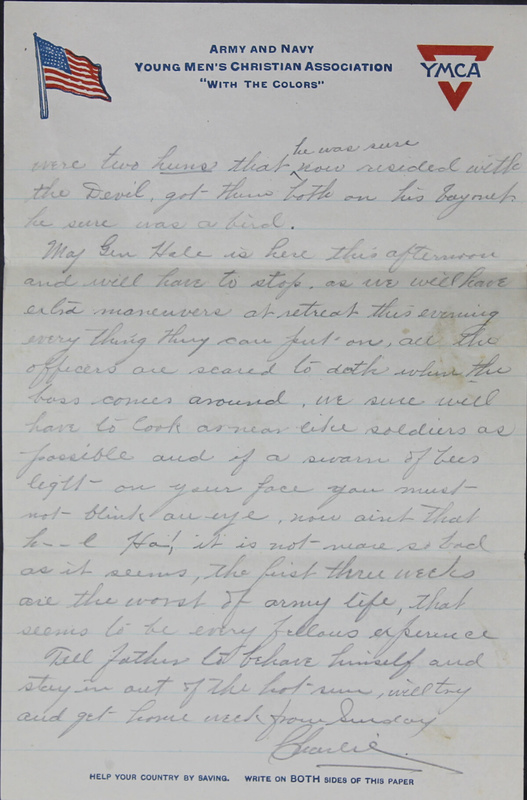 ARMY AND NAVY
YOUNG MEN'S CHRISTIAN ASSOCIATION
"WITH THE COLORS"
YMCA
he was sure
were two huns that now resided with
the Devil, got them both on his bayonet
he sure was a bird.
Maj Gen Hale is here this afternoon
and will have to stop, as we will have
maneuvers at retreat this evening
every thing they can put on, all the
officers are scared to deth when the
boss comes around, we sure will
have to look as near like soldiers as
possible and if a swarm of bees
light on your face you must
not blink an eye, now aint that
h--l Ha!, it is not near so bad
as it seems, the first three weeks
are the worst of army life, that
seems to be every fellows experence
Tell father to behave himself and
stay in out of the hot sun, will try
and get home week from Sunday
Charlie.
HELP YOUR COUNTRY BY SAVING. WRITE ON BOTH SIDES OF THIS PAPER